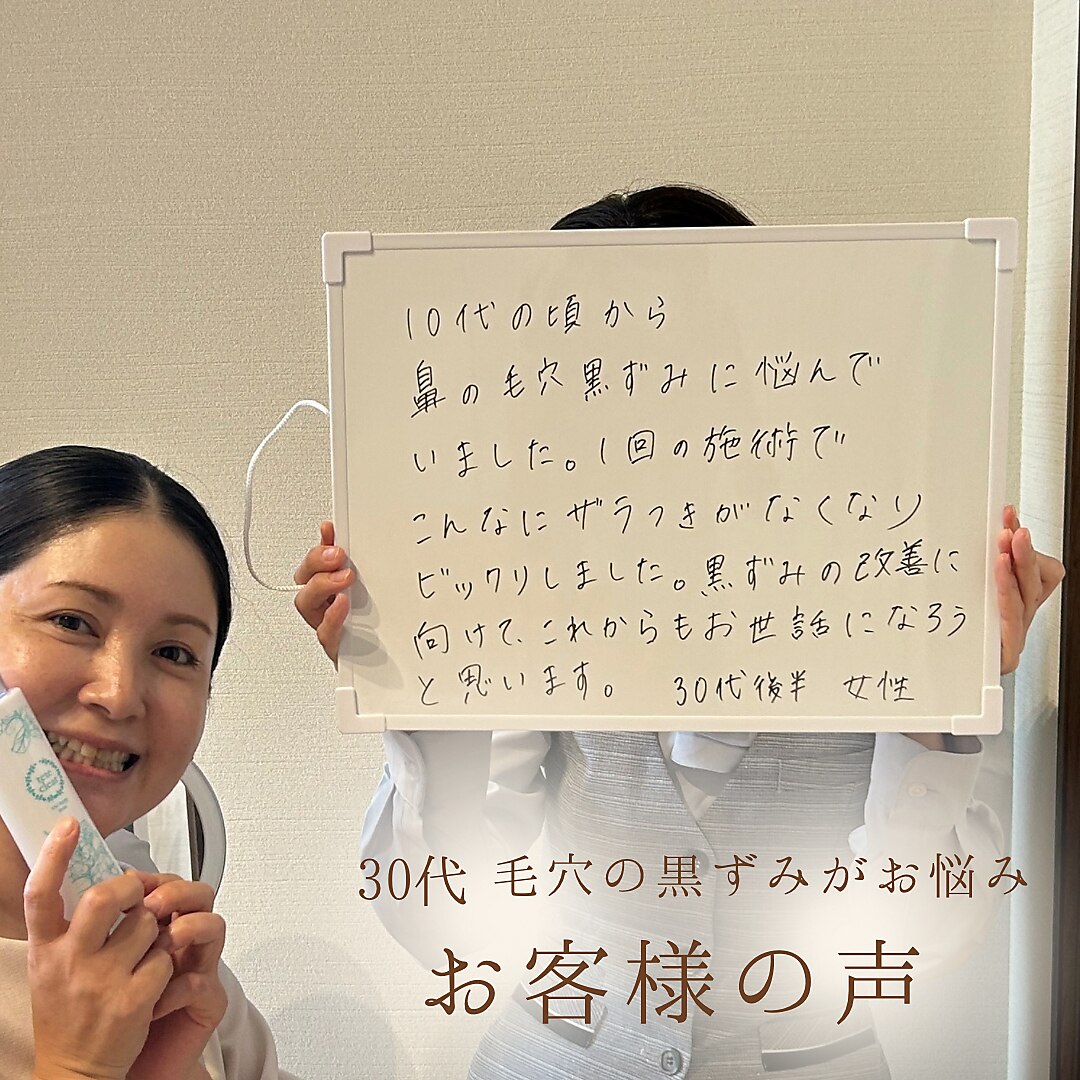 10代の頃から
鼻の毛穴黒ずみに悩んで
いました。1回の施術で
こんなにザラつきがなくなり
ビックリしました。黒ずみの改善に
向けて、これからもお世話になろう
と思います。 30代後半 女性
30代 毛穴の黒ずみがお悩み
お客様の声